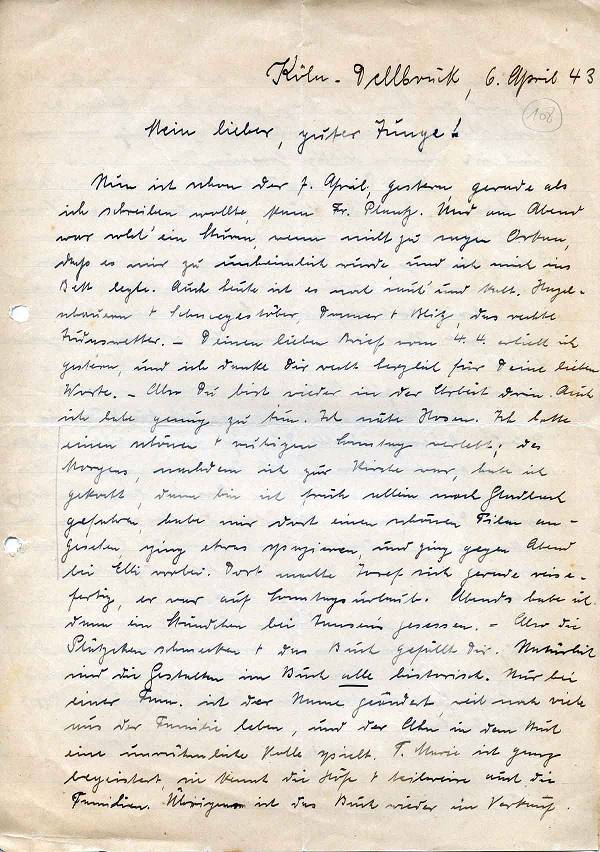 Köln-Dellbrück, 6. April 43
108
Mein lieber, guter Junge!
Nun ist schon der 7. April, gestern, gerade als
ich schreiben wollte, kam Fr. Plaatz. Und am Abend
war solch' ein Sturm, wenn nicht zu sagen Orkan,
daß es mir zu unheimlich wurde und ich mich ins
Bett legte. Auch heute ist es noch und kalt. Hagel-
schauern + Schneegestöber, Donner + Blitz, das rechte
wetter. – Deinen lieben Brief vom 4.4. erhielt ich
gestern, und ich danke Dir recht herzlich für Deine lieben
Worte. – Also Du bist wieder in der Arbeit drin. Auch
ich habe genug zu tun. Ich nähe Hosen. Ich hatte
einen schönen + ruhigen Sonntag verlebt; des
Morgens, nachdem ich zur Kirche war, habe ich
gekocht, dann bin ich früh allein nach Gladbach
gefahren, habe mir dort einen schönen Film an-
gesehen, ging etwas spazieren, und ging gegen Abend
bei Elli vorbei. Dort machte Josef sich gerade reise-
fertig, er war auf Sonntagsurlaub. Abends habe ich
dann ein Stündchen bei gesessen. – Also die
Plätzchen schmecken + das Buch gefällt Dir. Natürlich
sind die Gestalten im Buch alle historisch. Nur bei
einer Fam. ist der Name geändert, weil noch viele
aus der Familie leben, und der Ahn in dem Buch
eine unrühmliche Rolle spielt. T. Marie ist ganz
begeistert, sie kennt die Höfe + teilweise auch die
Familien. Übrigens ist das Buch wieder im Verkauf.